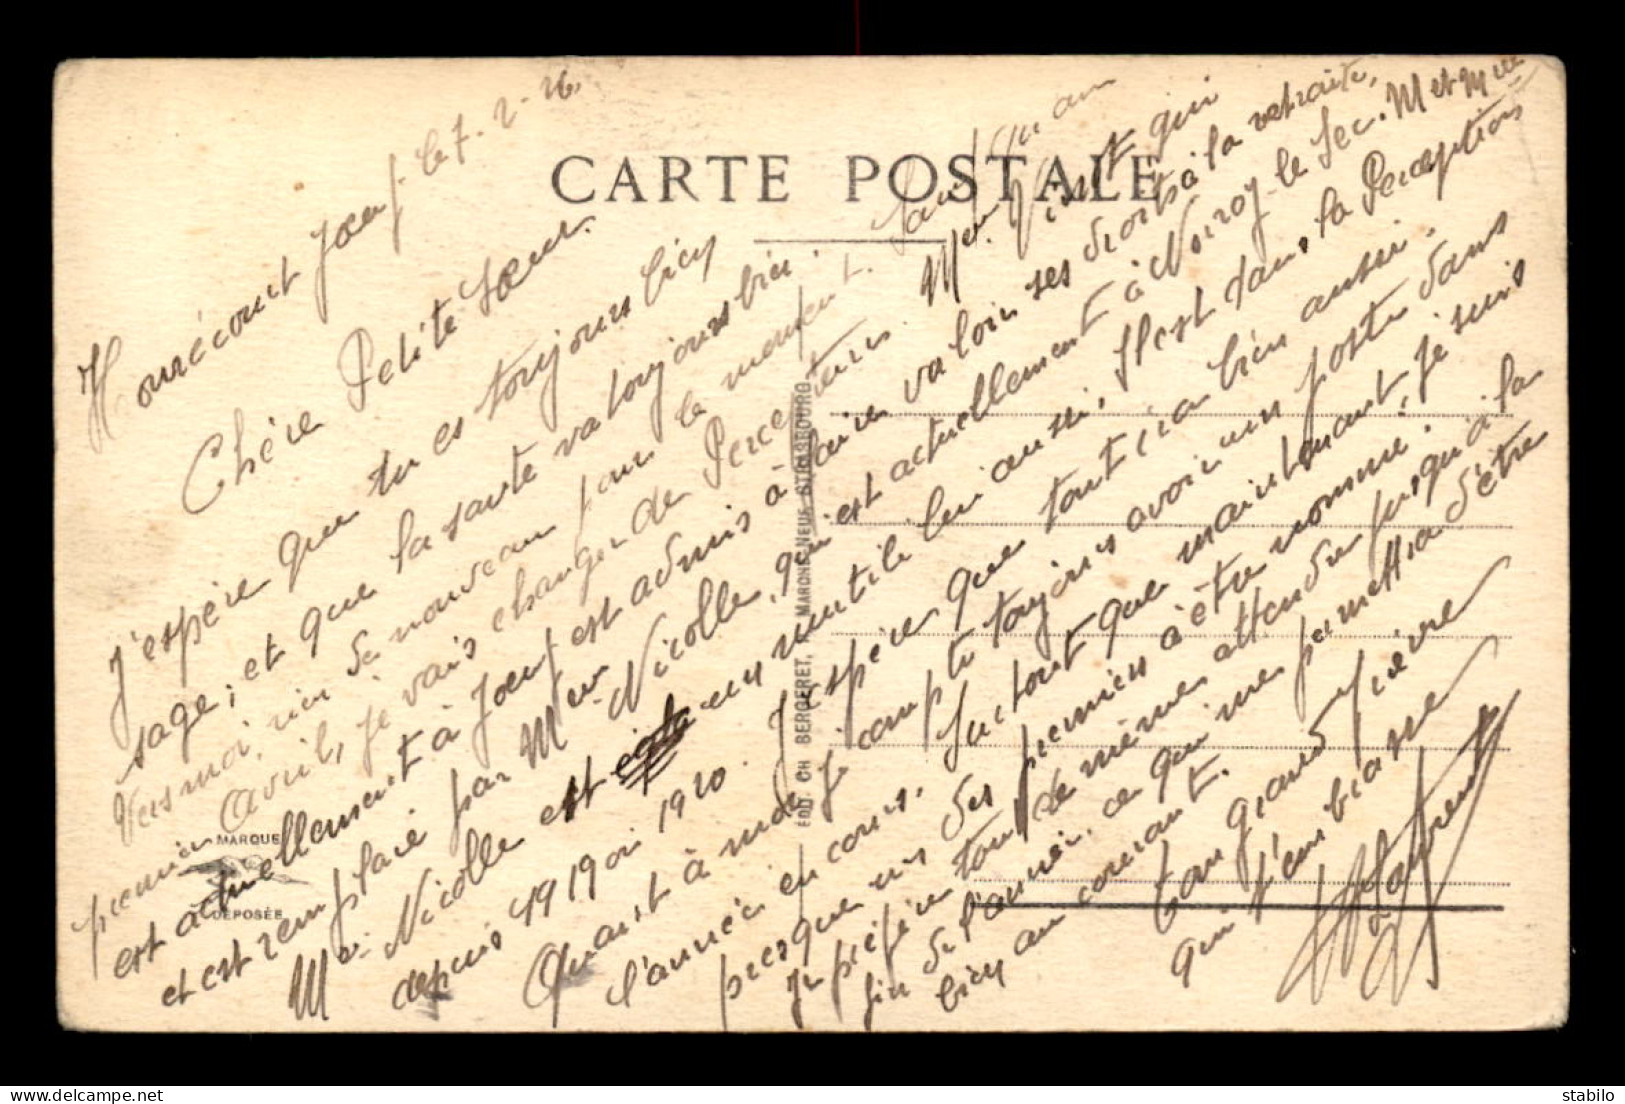 CARTE POSTALE
Homécourt Joeuf le 7-2-26
Chère Petite Soeur.
J'espère que tu es toujours bien
sage, et que la santé va toujours bien.
Vers moi, rien de nouveau pour le moment. Sauf qu'au
premier Avril, je vais changer de Percepteur. Mr. Vinot qui
est actuellement à Joeuf est admis à faire valoir ses droits à la retraite,
et est remplacé par Mr Nicolle, qui est actuellement à Noiroy-le Sec. M et Mme
Mr. Nicolle est un mutilé lui aussi, Il est dans la Perception
depuis 1919 ou 1920. J'espère que tout ira bien aussi.
Quant à moi je compte toujours avoir un poste dans
l'année en cours. Surtout que maintenant, je suis
presque un des premiers à être nommé.
Je préfère tout de même attendre jusqu'à la
fin de l'année, ce qui me permettra d'être
bien au courant.
Ton grand frère
qui t'embrasse
Laurent
MARQUE
DÉPOSÉE
EDIT. CH BERGERET, MARCHÉ-NEUF STRASBOURG
stabilo
www.delcampe.net